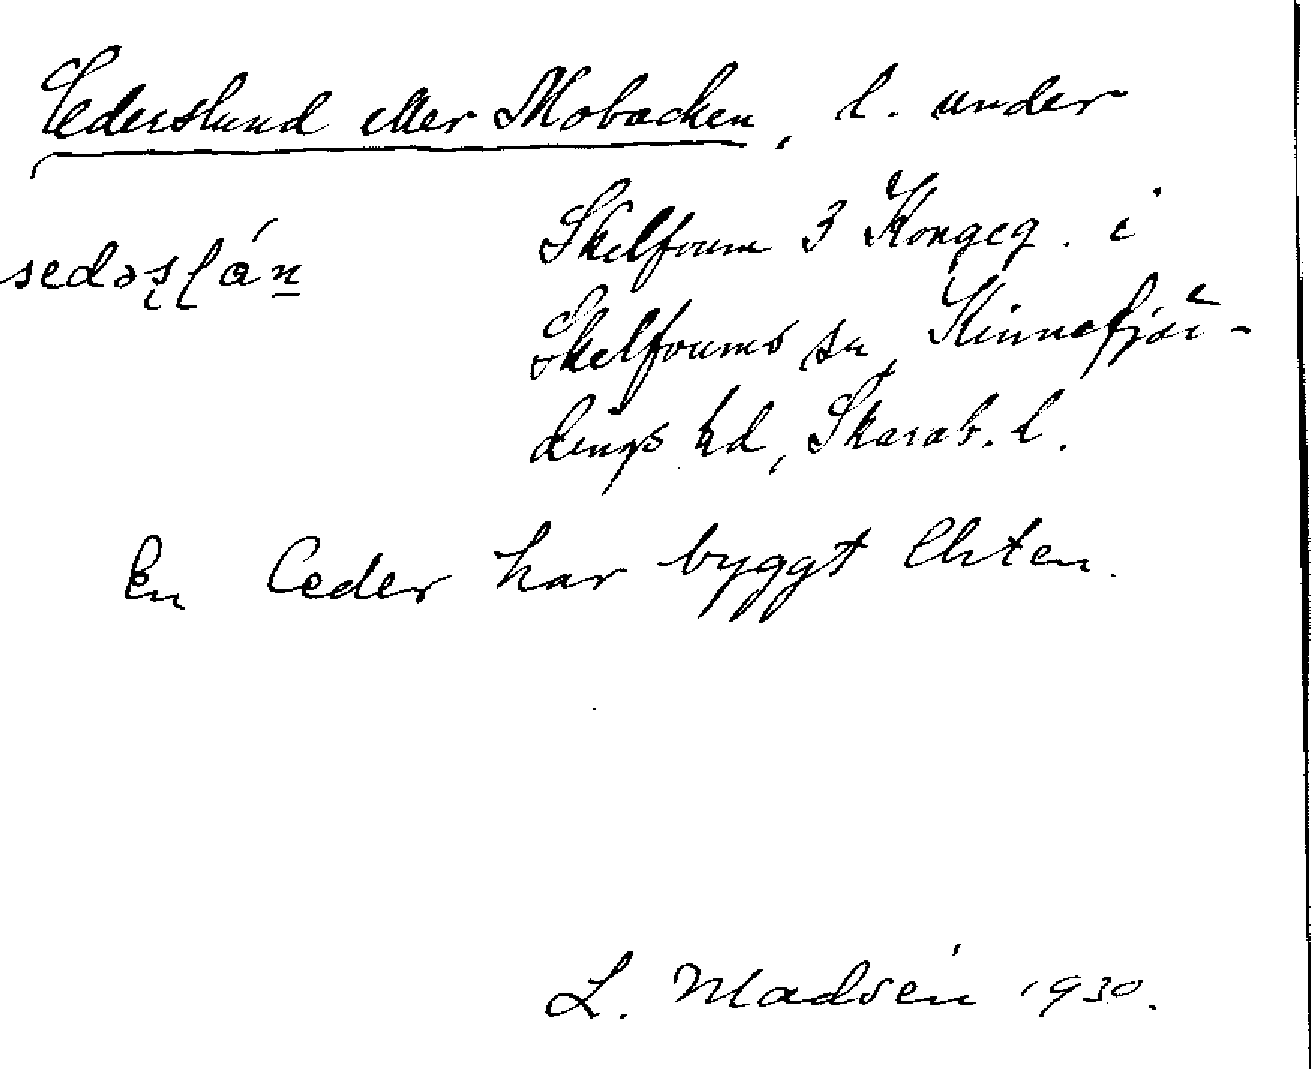 Cederslund eller Mobacken, l. under
Skelfvum 3 Kongeg. i
sedəʂɭán
Skelfvums sn, Kinnefjär-
dings hd, Skarab. l.
En Ceder har byggt
L. Madsén 1930.